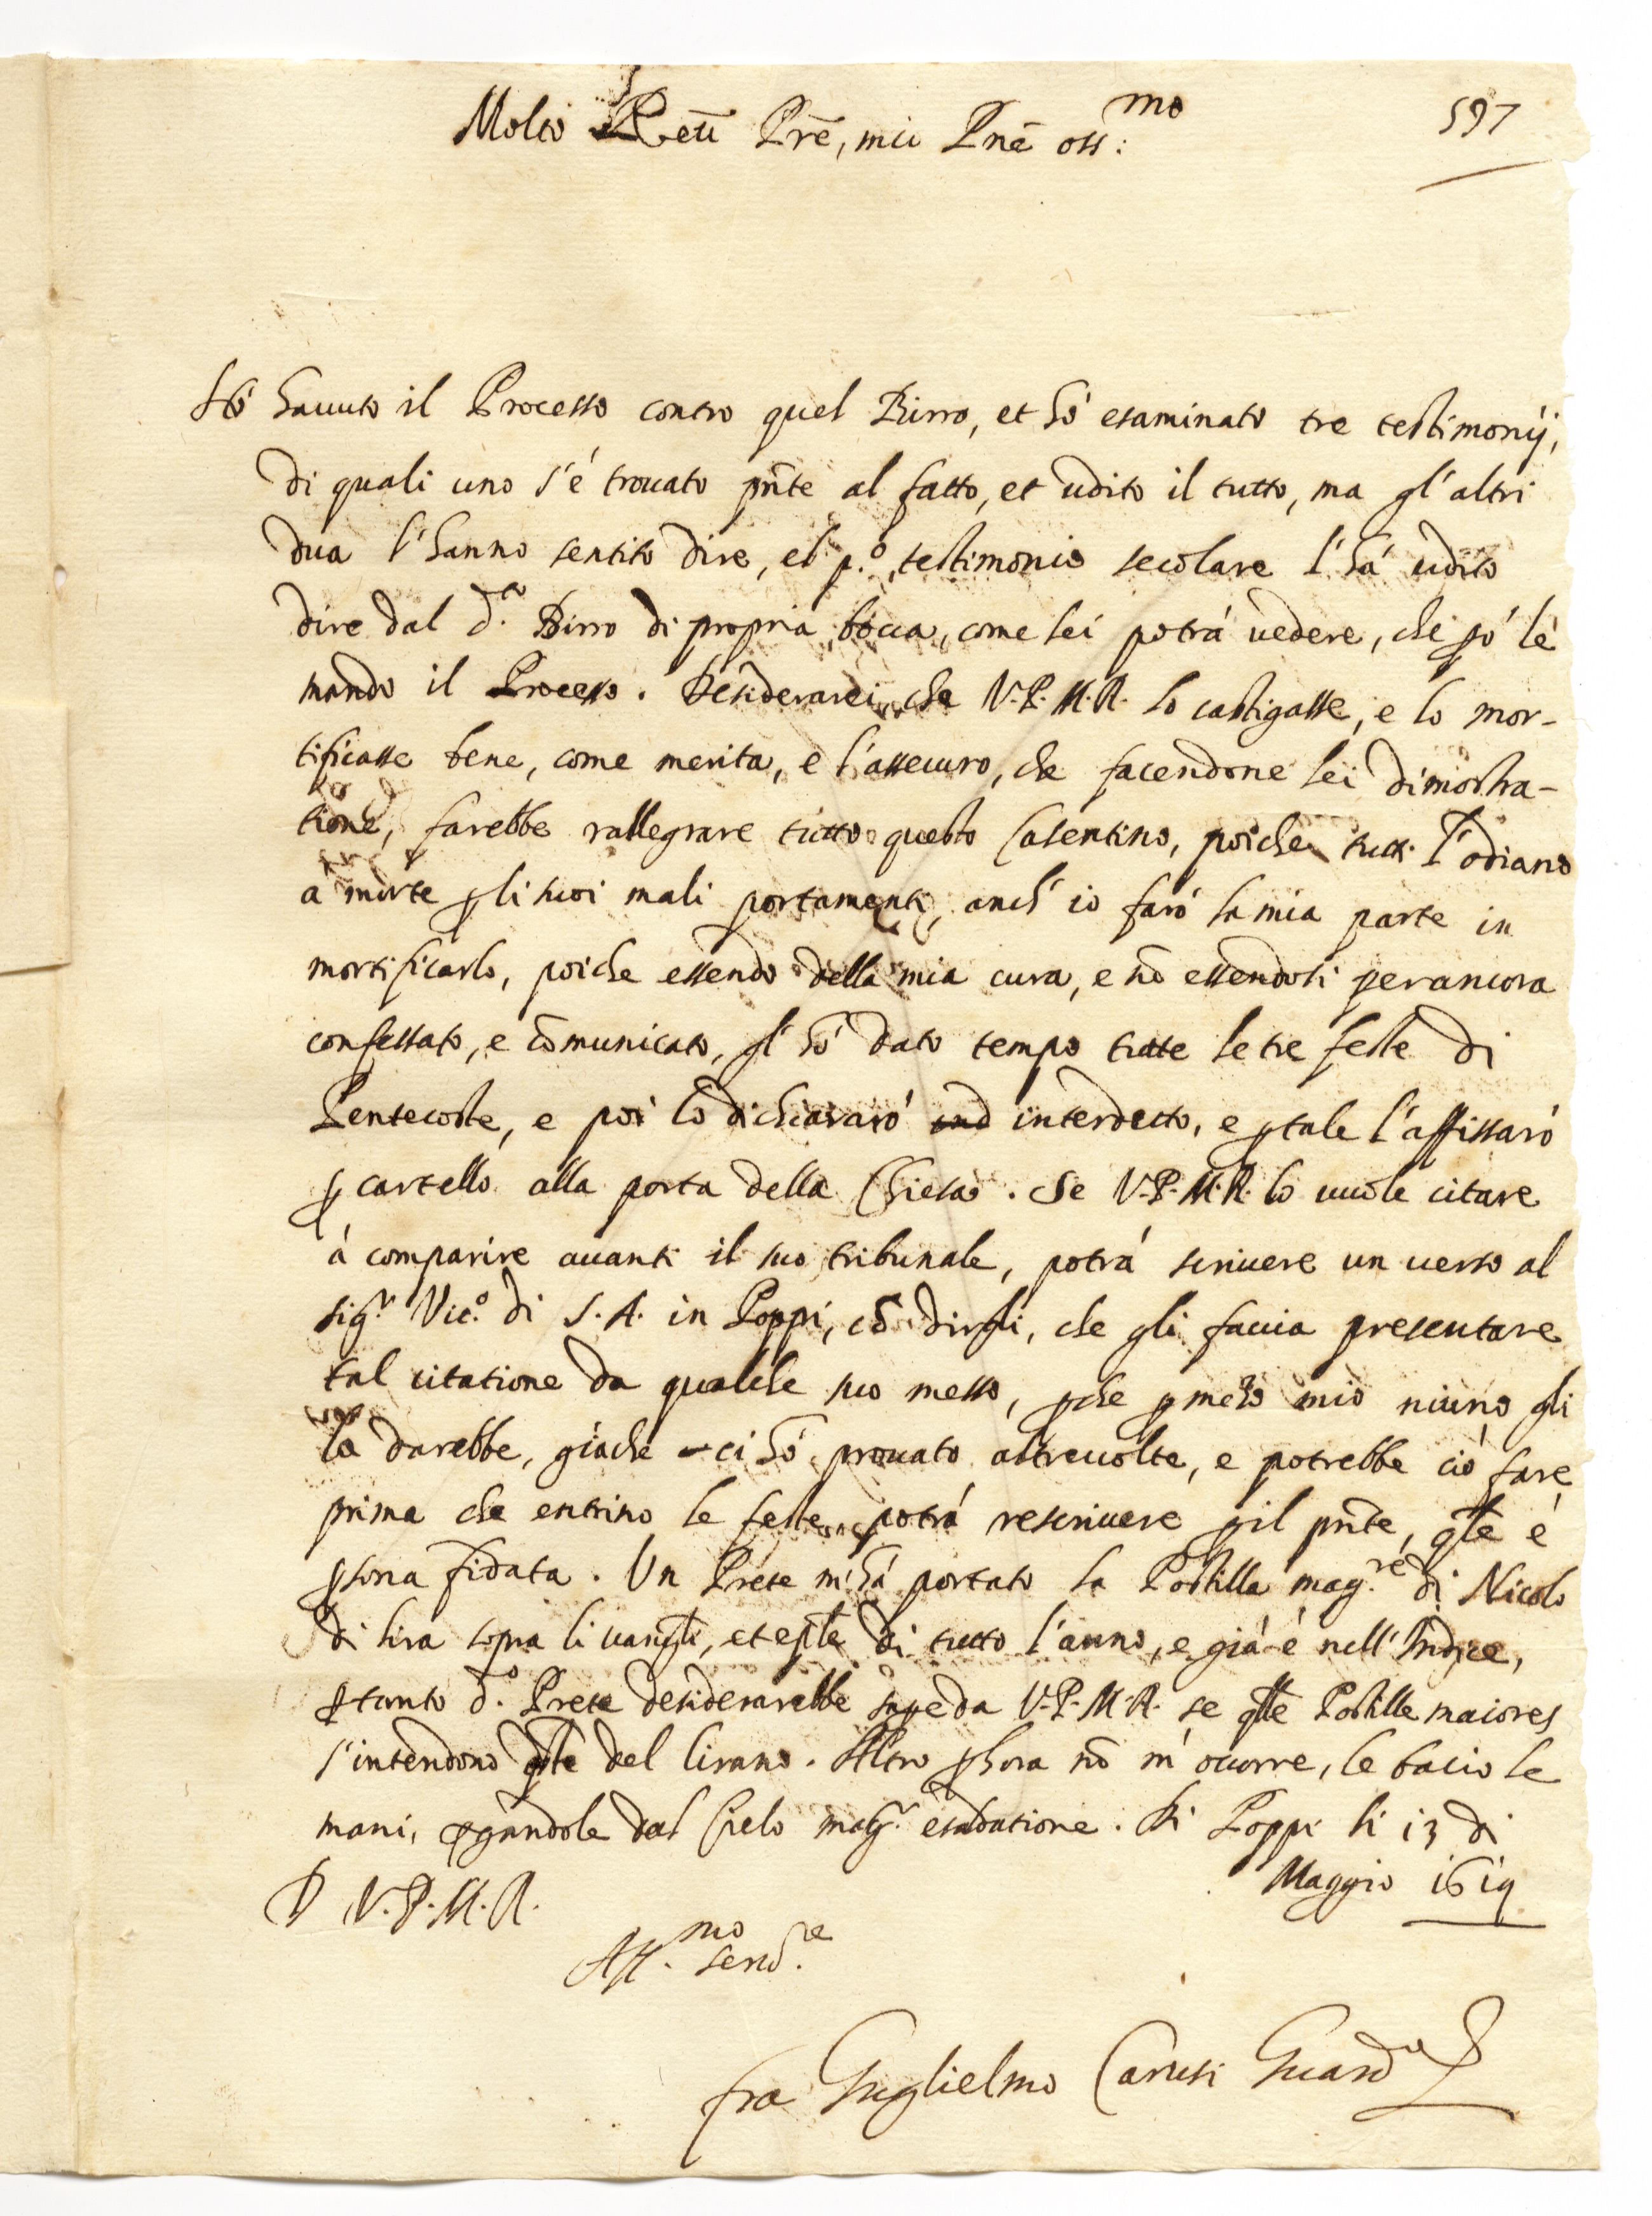 Molto Reu Prē, mio Pnē oss:mo
597
Hó hauuto il Processo contro quel Birro, et hó esaminato tre testimonij,
di quali uno s'é trouato pn̄te al fatto, et udito il tutto, ma gl'altri
dua l'hanno sentito dire, el p.o testimonio secolare l'há udito
dire dal d.o Birro di propria bocca, come lei potrá uedere, che ꝑó le
mando il Processo. Desiderarei che V.P.M.R. lo castigasse, e lo mor-
tificasse bene, come merita, e l'assecuro, che facendone lei dimostra-
tione, farebbe rallegrare tutto questo Casentino, poiche tutti l'odiano
a morte ꝑ li suoi mali portamenti, anch'io faró la mia parte in
mortificarlo, poiche essendo della mia cura, e nō essendosi perancora
confessato, e cōmunicato, gl'hó dato tempo tutte le tre feste di
Pentecoste, e poi lo dichiararó ind interdetto, e ꝑ tale l'affissaró
ꝑ cartello alla porta della Chiesa. Se V.P.M.R. lo uuole citare
á comparire auanti il suo tribunale, potrá scriuere un uerso al
sig.r Vic.o di S.A. in Poppi, cō dirgli, che gli faccia presentare
tal citatione da qualche suo messo, ꝑche ꝑ mezo mio niuno gli
la darebbe, giache ci hó prouato altreuolte, e potrebbe ció fare
prima che entrino le feste, potrá rescriuere ꝑ il pn̄te, qle é
ꝑsona fidata. Un Prete m'há portato la Postilla mag.re di Nicolo
di lira sopra li uangli, et eple di tutto l'anno, e giá é nell'Indice,
ꝑtanto d.o Prete desiderarebbe saꝑe da V.P.M.R. se qlle Postille maiores
s'intendono qste del lirano. Altro ꝑhora nō m'occorre, le bacio le
mani, p̄gandole dal Cielo mag.r esaltatione. Di Poppi li 13 di
Maggio 1619
D V.P.M.R.
Aff.mo seru.re
fra Guglielmo Carusi Guard.o